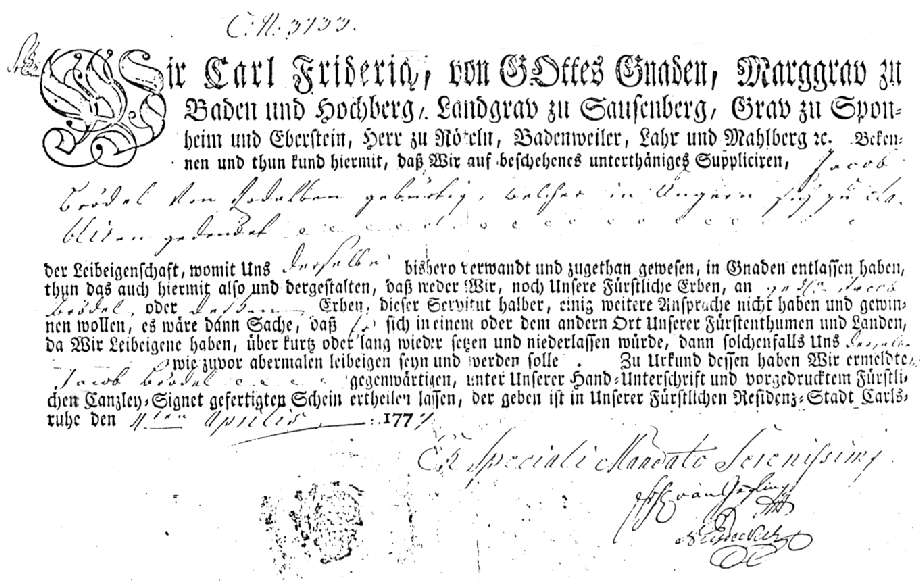 C. N. 3133.
Wir Carl Friderich, von GOttes Gnaden, Marggrav zu
Baden und Hochberg, Landgrav zu Sausenberg, Grav zu Spon-
heim und Eberstein, Herr zu Röteln, Badenweiler, Lahr und Mahlberg ꝛc. Beken-
nen und thun kund hiermit, daß Wir auf beschehenes unterthäniges Suppliciren, Jacob
Brödel von gebürtig, welcher in Ungarn sich zu eta-
bliren gedencket
der Leibeigenschaft, womit Uns derselbe bishero verwandt und zugethan gewesen, in Gnaden entlassen haben,
thun das auch hiermit also und dergestalten, daß weder Wir, noch Unsere Fürstliche Erben, an Jacob
Brödel, oder dessen Erben, dieser Servitut halber, einig weitere Ansprache nicht haben und gewin-
nen wollen, es wäre dann Sache, daß Er sich in einem oder dem andern Ort Unserer Fürstenthumen und Landen,
da Wir Leibeigene haben, über kurtz oder lang wieder setzen und niederlassen würde, dann solchenfalls Uns derselbe
wie zuvor abermalen leibeigen seyn und werden solle. Zu Urkund dessen haben Wir ermeldte
Jacob Brödel gegenwärtigen, unter Unserer Hand-Unterschrift und vorgedrucktem Fürstli-
chen Canzley-Signet gefertigten Schein ertheilen lassen, der geben ist in Unserer Fürstlichen Residenz-Stadt Carls-
ruhe den 11ten Aprilis 177
Ex Speciali Mandato Serenissimi